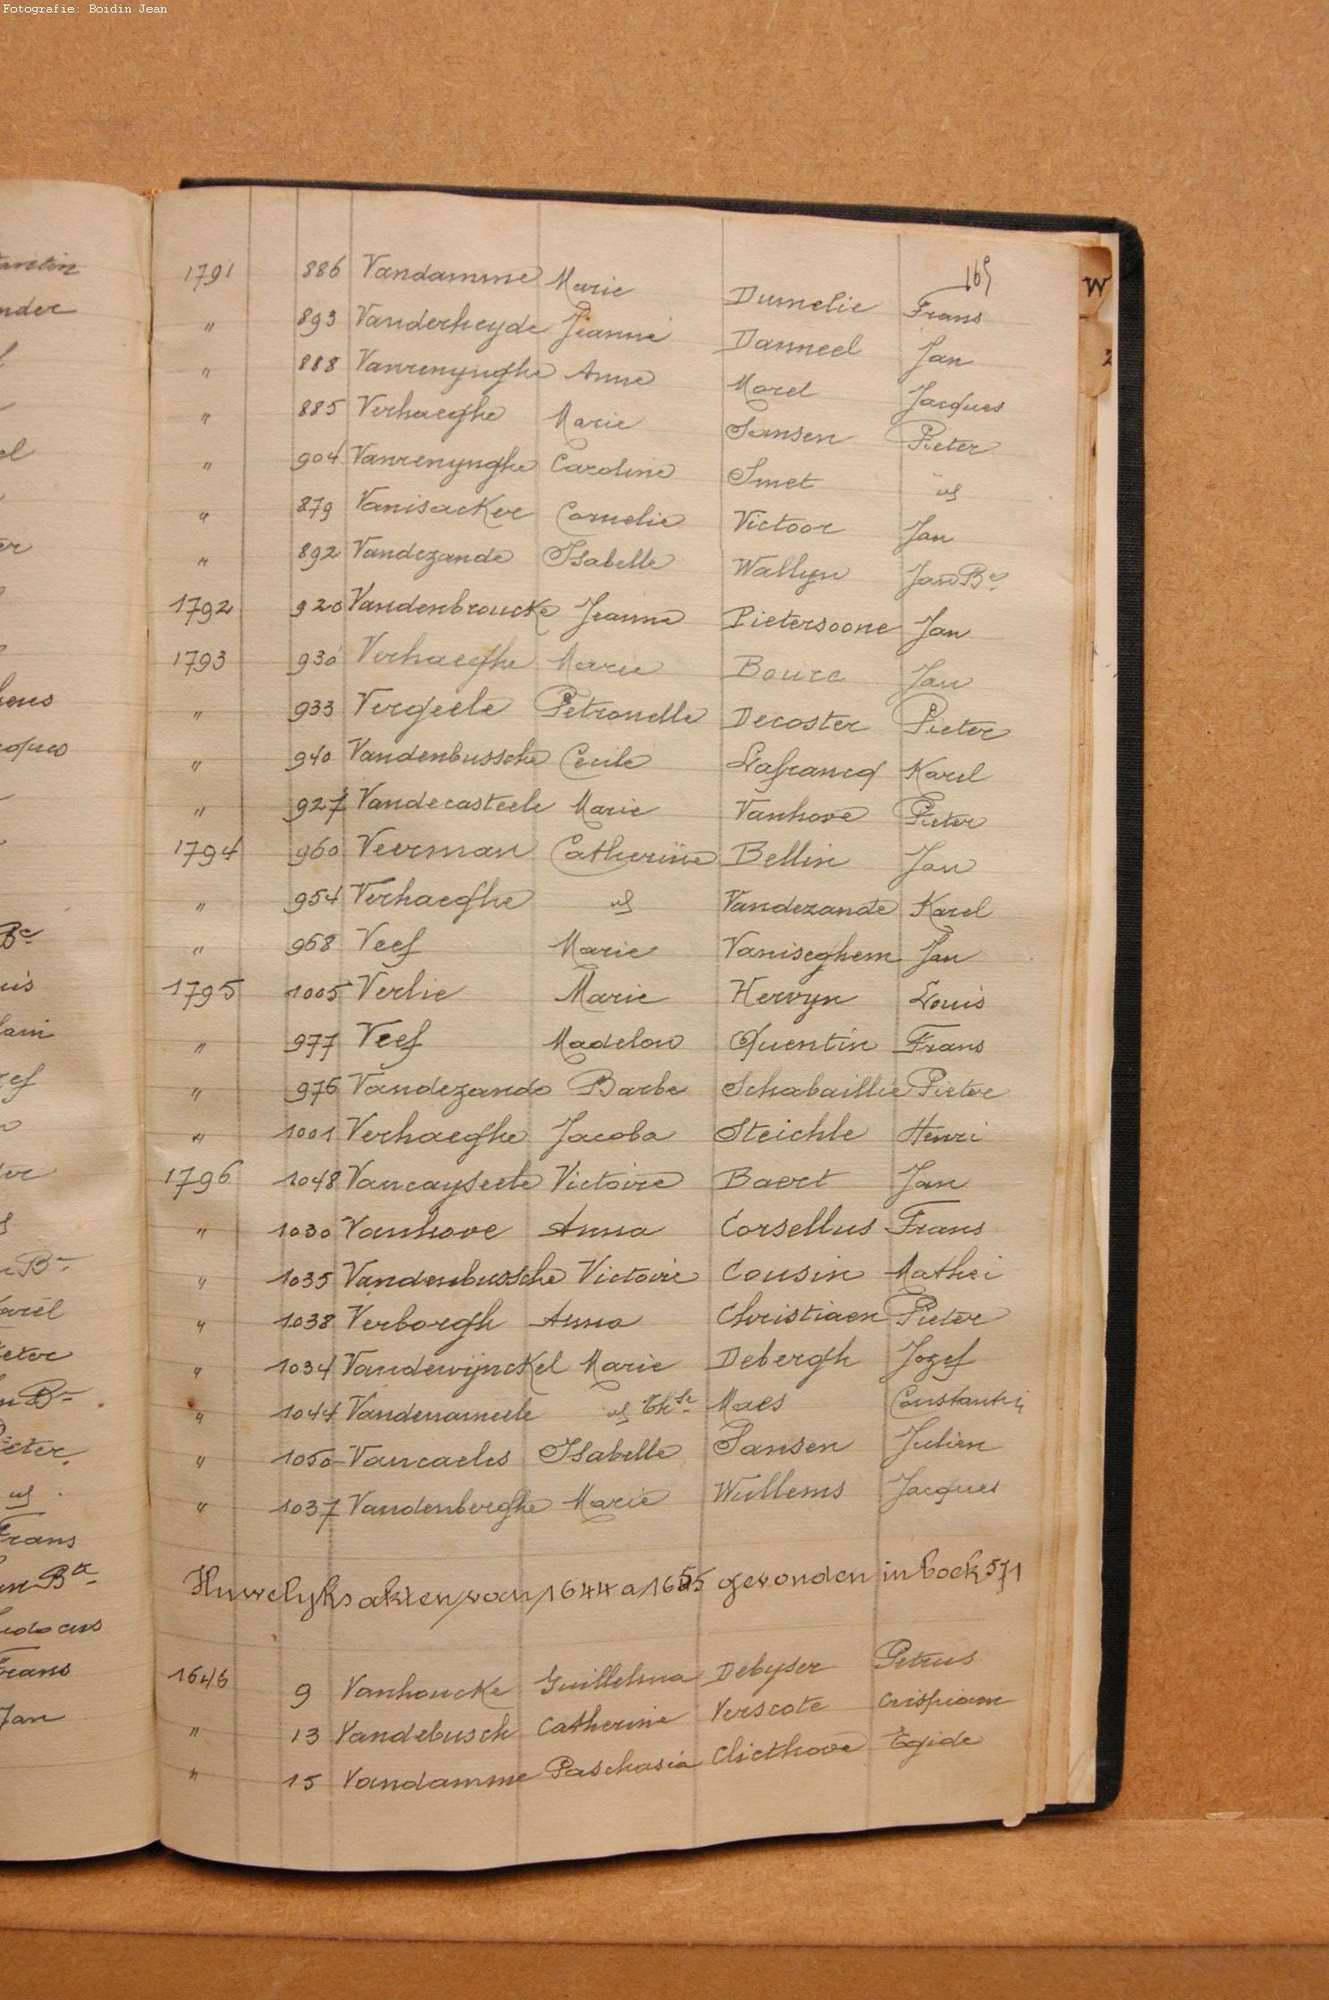 Fotografie: Boidin Jean
165
W
1791 886 Vandamme Marie Dumelie Frans
" 893 Vanderheyde Jeanne Danneel Jan
" 888 Vanrenynghe Anne Morel Jacques
" 885 Verhaeghe Marie Sansen Pieter
" 904 Vanrenynghe Caroline Smet id
" 879 Vanisacker Cornelie Victoor Jan
" 892 Vandezande Isabelle Wallyn Jan Bte
1792 920 Vandenbroucke Jeanne Pietersoone Jan
1793 930 Verhaeghe Marie Bourc Jan
" 933 Vergeele Petronelle Decoster Pieter
" 940 Vandenbussche Cecile Lafrancq Karel
" 927 Vandecasteele Marie Vanhove Pieter
1794 960 Veerman Catherine Bellin Jan
" 954 Verhaeghe id Vandezande Karel
" 968 Veef Marie Vaniseghem Jan
1795 1005 Verlie Marie Hervyn Louis
" 977 Veef Madelon Quentin Frans
" 976 Vandezande Barbe Schabaillie Pieter
" 1001 Verhaeghe Jacoba Steichle Henri
1796 1048 Vancayseele Victoire Baert Jan
" 1030 Vanhove Anna Corsellus Frans
" 1035 Vandenbussche Victoire Cousin Mathei
" 1038 Verborgh Anna Christiaen Pieter
" 1034 Vandewijnckel Marie Debergh Jozef
" 1044 Vandenameele id Thse Maes Constantin
" 1050 Vancaeles Isabelle Sansen Julien
" 1037 Vandenberghe Marie Wullems Jacques
Huwelyksakten van 1644 a 1655 gevonden in boek 571
1646 9 Vanhoucke Guillelma Debyser Petrus
" 13 Vandebusch Catherine Verscote Crispiam
" 15 Vandamme Paschasia Clicthove Egide